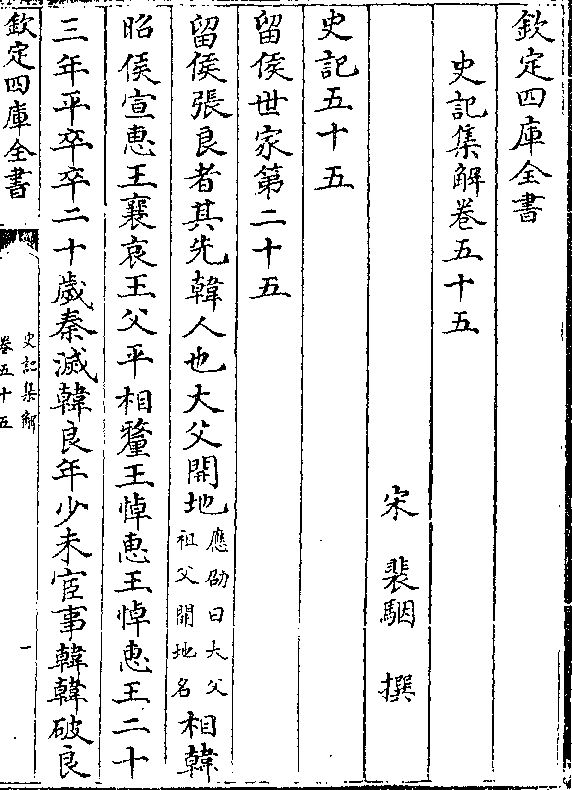 欽定四庫全書
史記集解卷五十五
宋 裴駰 撰
史記五十五
留侯世家第二十五
留侯張良者其先韓人也大父開地應劭曰大父祖父開地名相韓
昭侯宣惠王襄哀王父平相釐王悼惠王悼惠王二十
三年平卒卒二十歲秦滅韓良年少未宦事韓韓破良
欽定四庫全書
史記集解
卷五十五
一